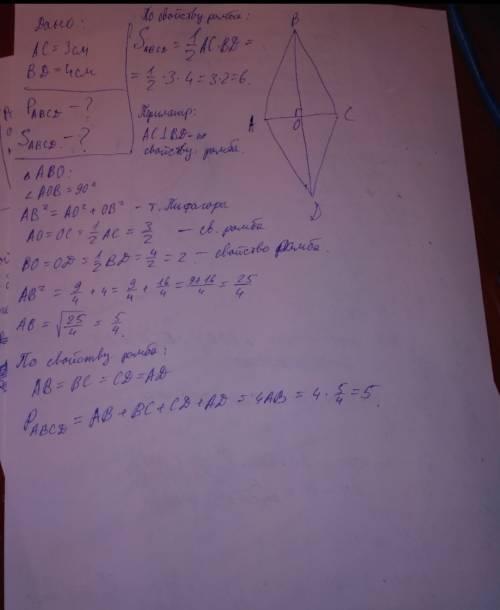 Дано:
AC = 3 см
BD = 4 см
P_ABCD - ?
S_ABCD - ?
По свойству ромба:
S_ABCD = 1/2 AC · BD =
= 1/2 · 3 · 4 = 3·2 = 6.
AC ⊥ BD - по
свойству ромба.
B
A
O
C
D
△ ABO:
∠ AOB = 90°
AB² = AO² + OB² - т. Пифагора
AO = OC = 1/2 AC = 3/2 - св. ромба
BO = OD = 1/2 BD = 4/2 = 2 - свойство ромба.
AB² = 9/4 + 4 = 9/4 + 16/4 = 9+16/4 = 25/4
AB = √25/4 = 5/4.
По свойству ромба:
AB = BC = CD = AD
P_ABCD = AB + BC + CD + AD = 4AB = 4 · 5/4 = 5.